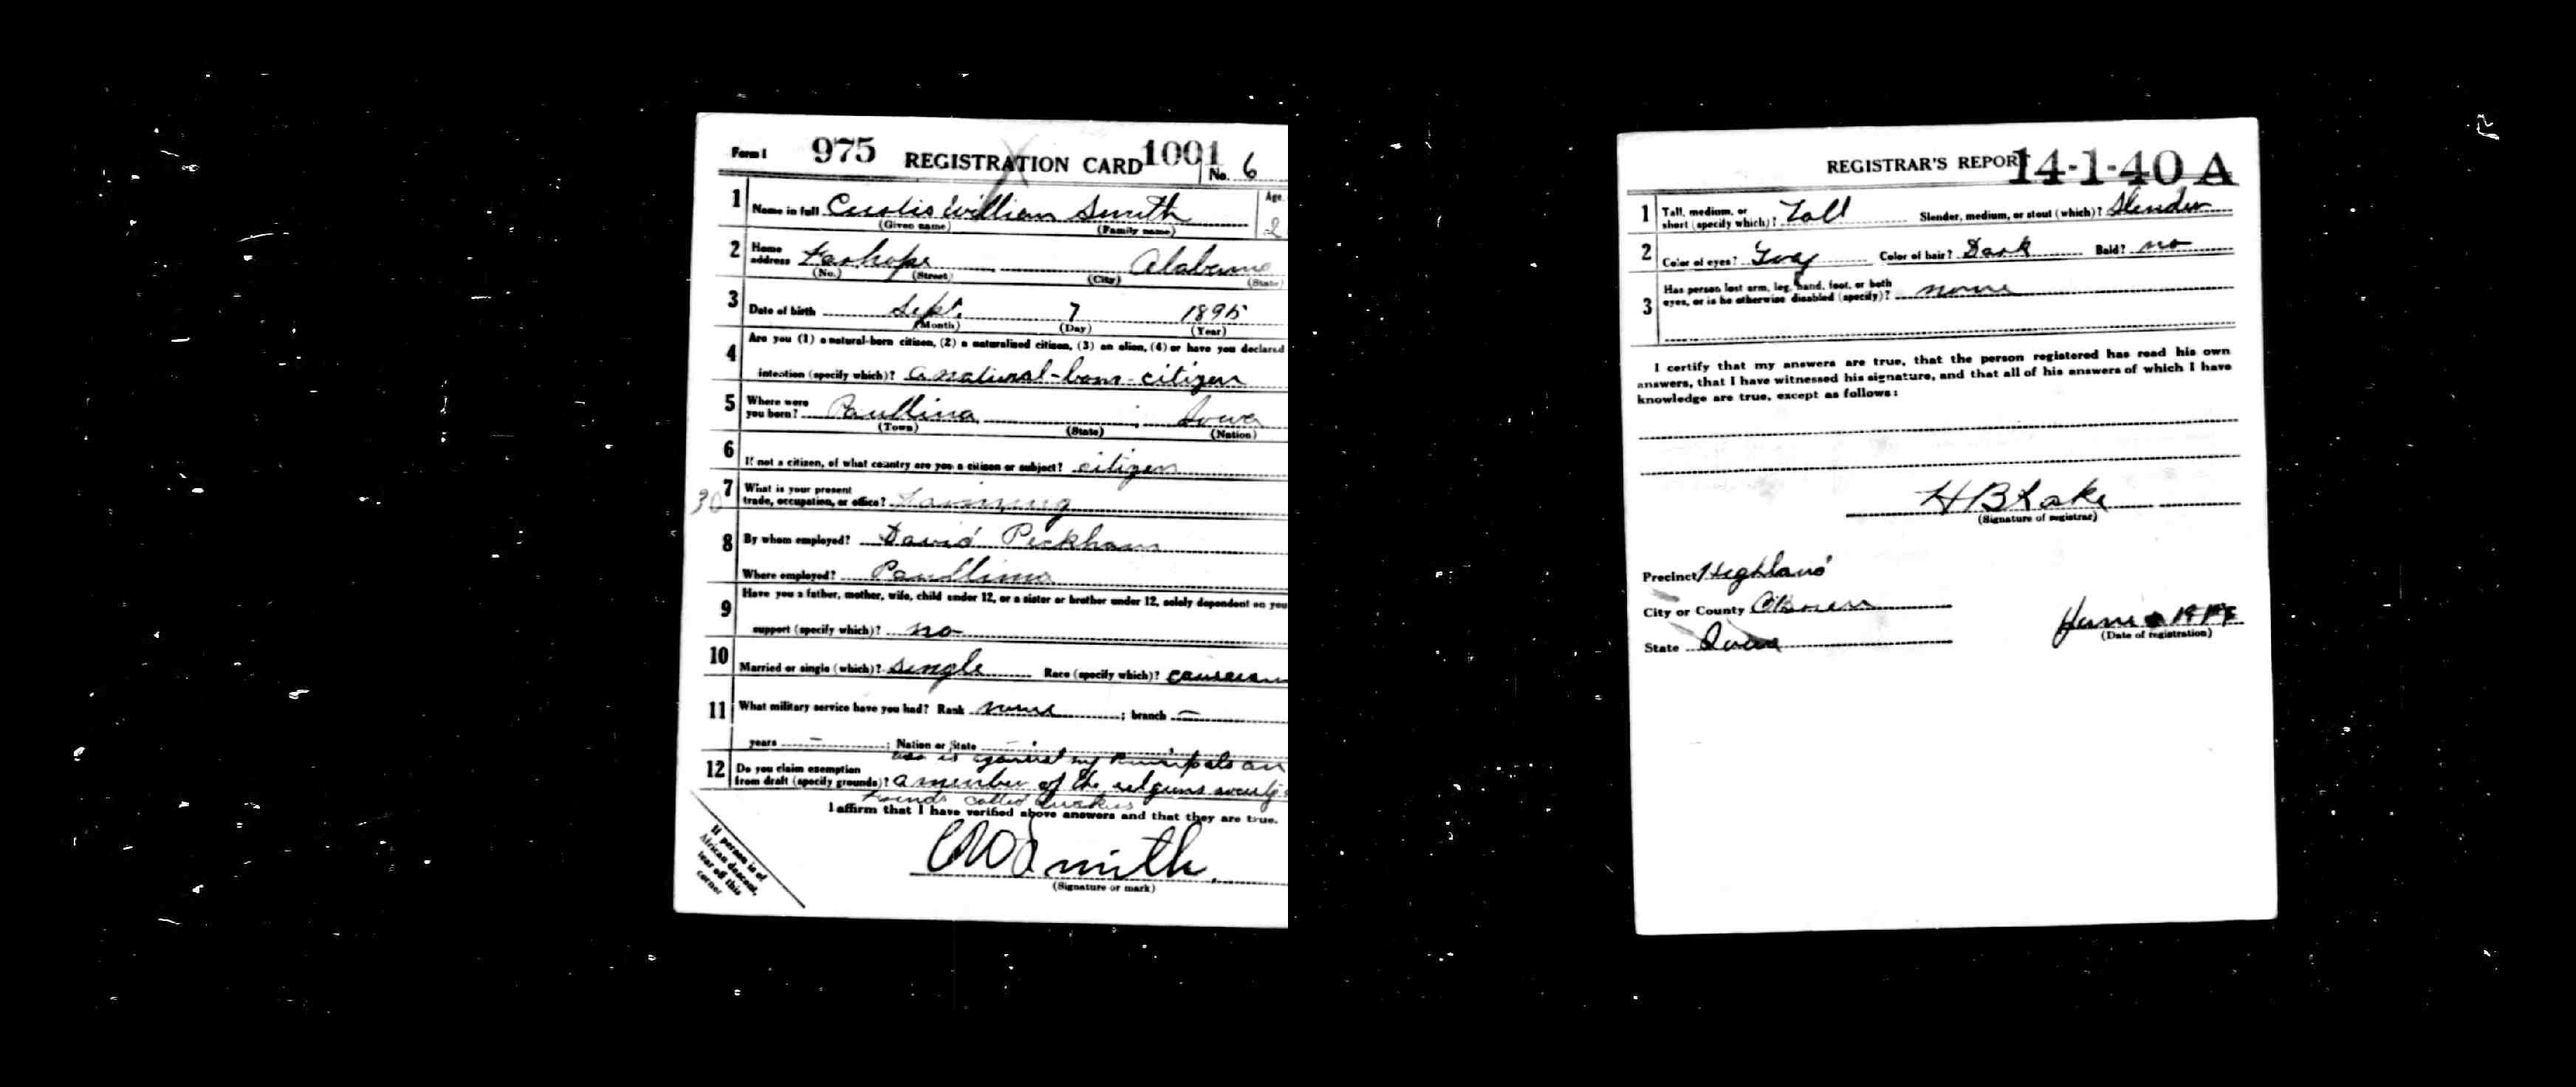 Form 1 975 REGISTRATION CARD 1001 No. 6
1 Name in full Curtis William Smith Age
(Given name) (Family name) 2
2 Home address Farhope Alabama
(No.) (Street) (City) (State)
3 Date of birth Sept. 7 1895
(Month) (Day) (Year)
4 Are you (1) a natural-born citizen, (2) a naturalized citizen, (3) an alien, (4) or have you declared
intention (specify which)? a natural-born-citizen
5 Where were you born? Paullina, Iowa
(Town) (State) (Nation)
6 If not a citizen, of what country are you a citizen or subject? citizen
30 7 What is your present trade, occupation, or office? Farming
8 By whom employed? David Peckham
Where employed? Paullina
9 Have you a father, mother, wife, child under 12, or a sister or brother under 12, solely dependent on you
support (specify which)? no
10 Married or single (which)? single Race (specify which)?
11 What military service have you had? Rank none ; branch —
years — ; Nation or State —
war is against my an
12 Do you claim exemption from draft (specify grounds)? a member of the society
Friends called Quakers
I affirm that I have verified above answers and that they are true.
C W Smith.
(Signature or mark)
If person is of
African descent,
tear off this
corner
REGISTRAR'S REPORT 14-1-40 A
1 Tall, medium, or short (specify which)? Tall Slender, medium, or stout (which)? Slender
2 Color of eyes? Gray Color of hair? Dark Bald? no
3 Has person lost arm, leg, hand, foot, or both eyes, or is he otherwise disabled (specify)? none
I certify that my answers are true, that the person registered has read his own
answers, that I have witnessed his signature, and that all of his answers of which I have
knowledge are true, except as follows:
H B Lake
(Signature of registrar)
Precinct Highland
City or County O'Brien
State Iowa
June
(Date of registration)